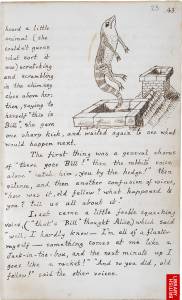 43
heard a little
animal (she
couldn't guess
what sort it
was) scratching
and scrambling
in the chimney
close above her:
then, saying to
herself "this is
Bill", she gave
one sharp kick, and waited again to see what
would happen next.
The first thing was a general chorus
of "there goes Bill!" then the rabbit's voice
alone "catch him, you by the hedge!" then
silence, and then another confusion of voices,
"how was it, old fellow? what happened to
you? tell us all about it."
Last came a little feeble squeaking
voice, ("that's Bill" thought Alice) which said
"well, I hardly know—I'm all of a fluster
myself—something comes at me like a
Jack-in-the-box, and the next minute up I
goes like a rocket!" "And so you did, old
fellow!" said the other voices.
BRITISH
LIBRARY